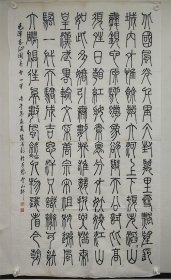 北國風光千里冰封萬里雪飄望長
城內外惟餘莽莽大河上下頓失滔滔山
舞銀蛇原馳蠟象欲與天公試比高
須晴日看紅裝素裹分外妖嬈江山
如此多嬌引無數英雄競折腰惜秦
皇漢武略輸文采唐宗宋祖稍遜風
騷一代天驕成吉思汗只識彎弓射
大雕俱往矣數風流人物還看今朝
毛澤東沁園春雪一首